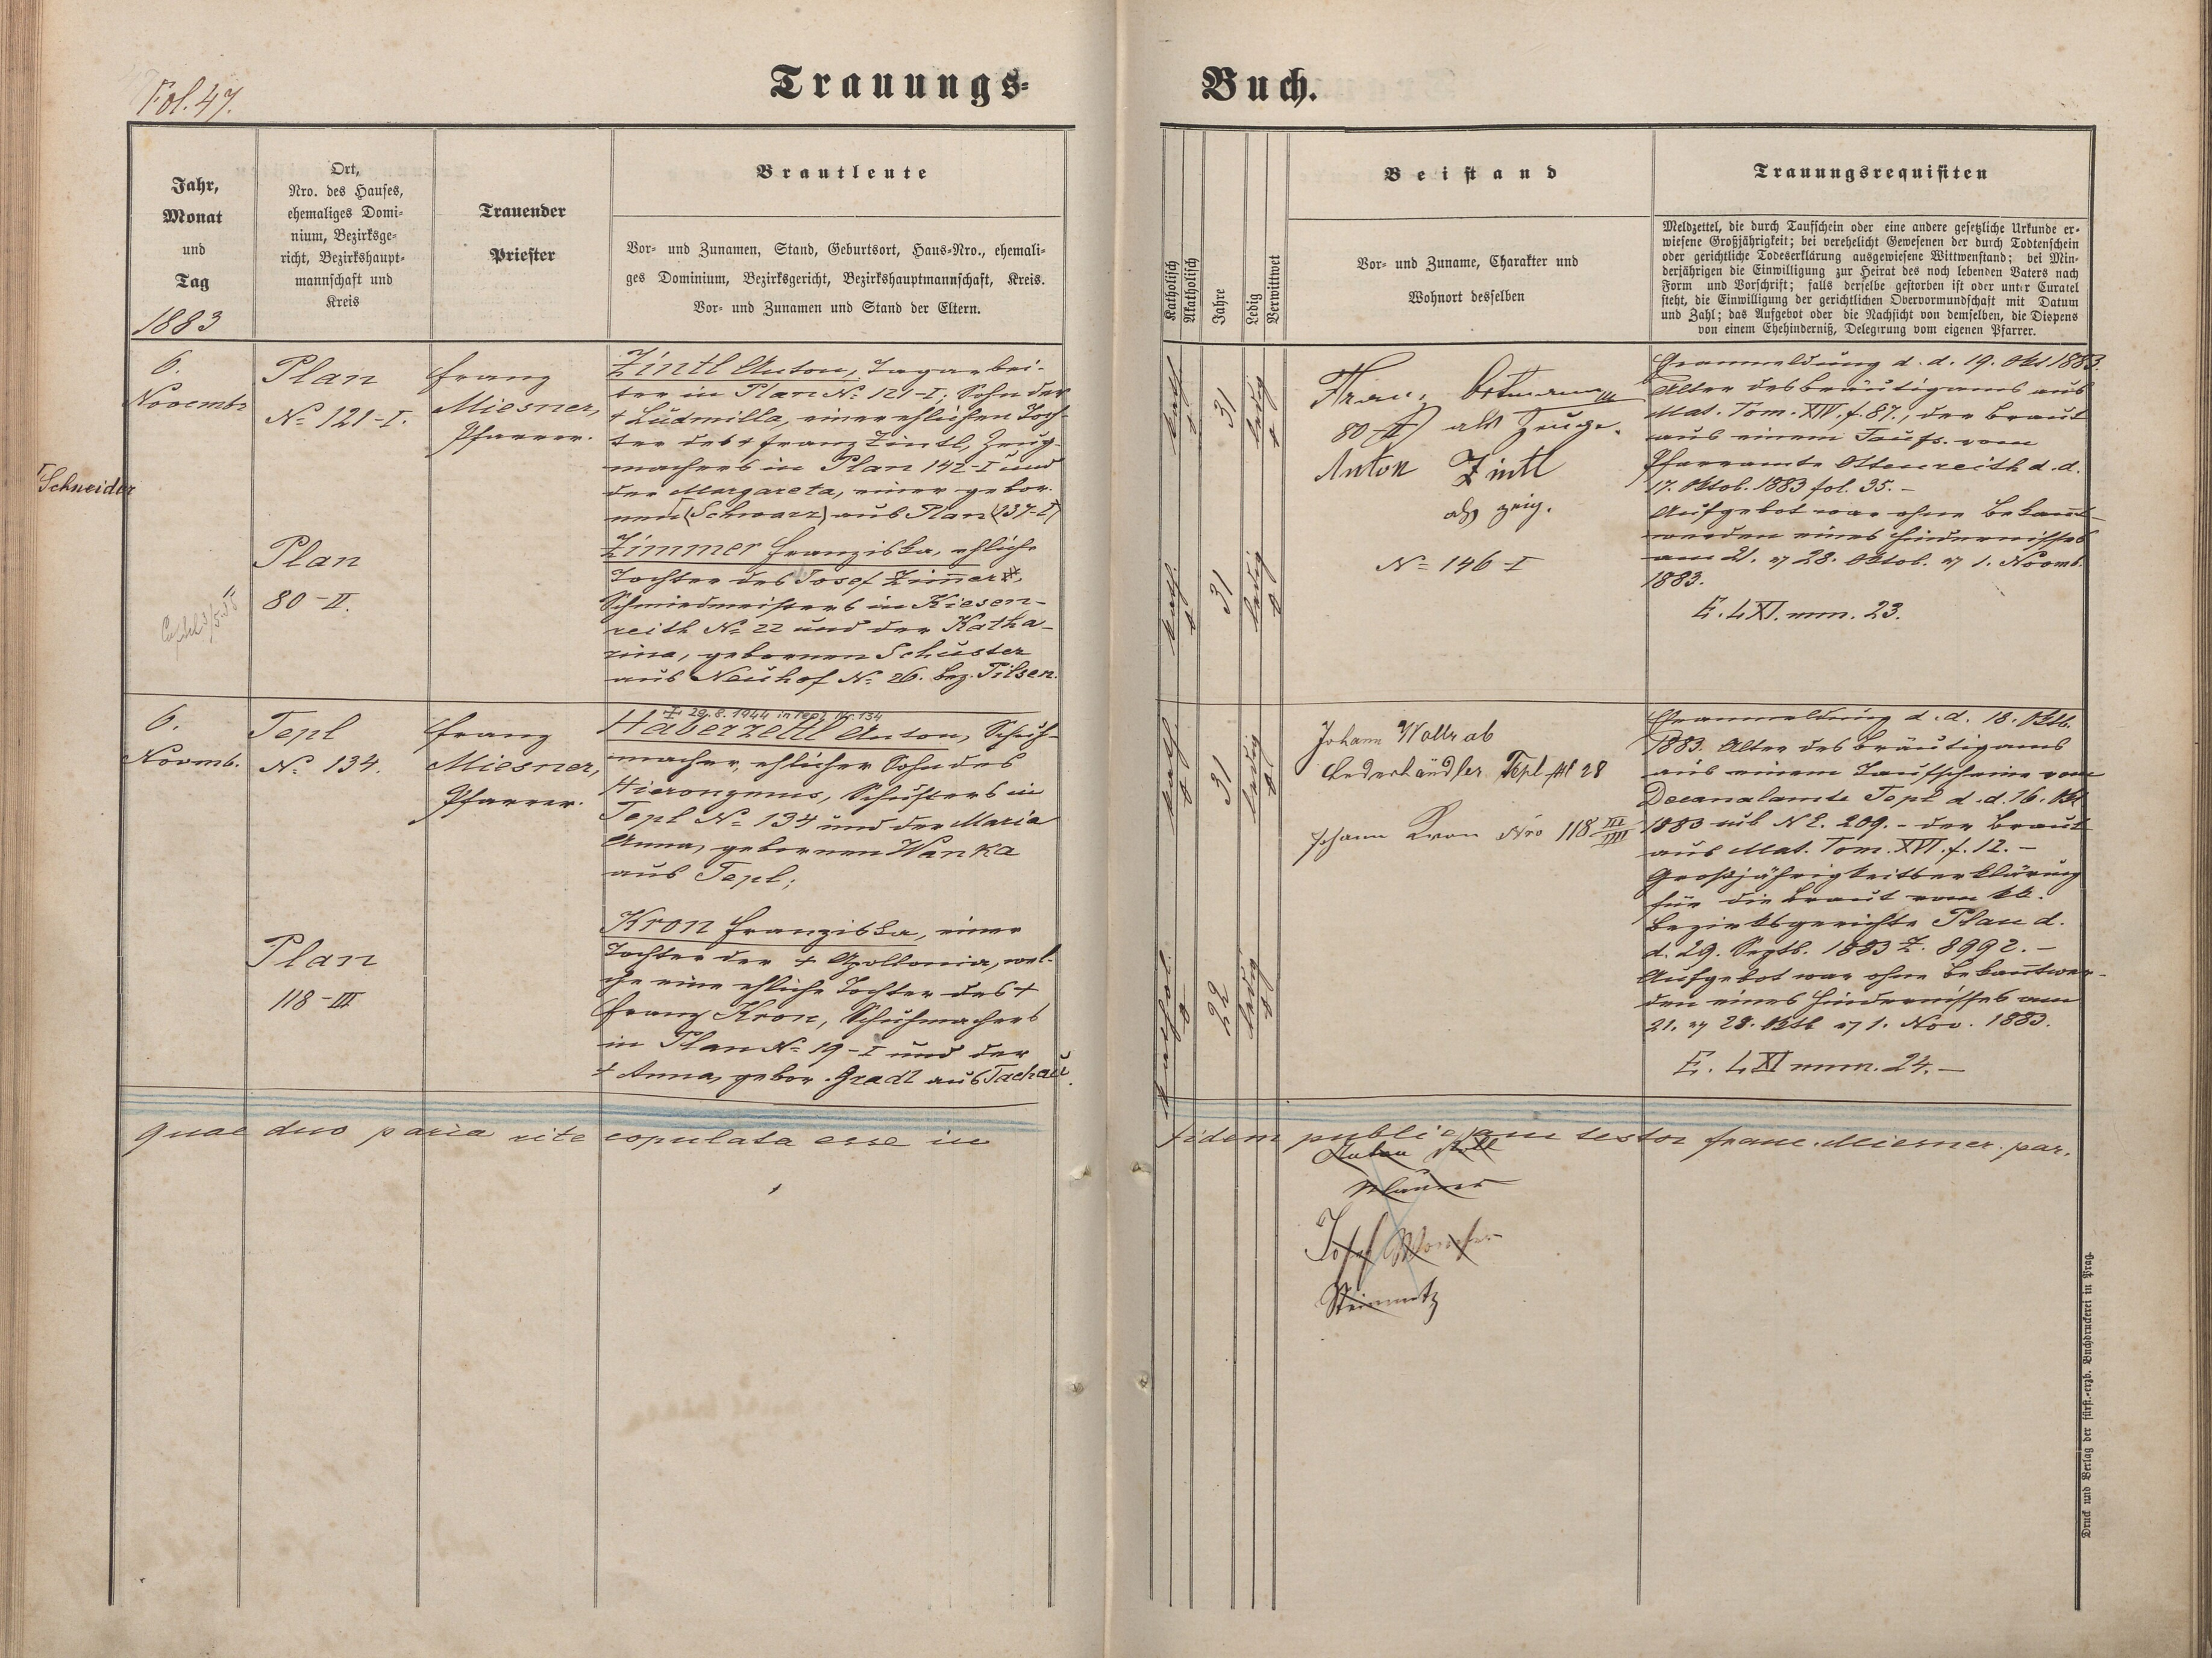 Fol. 47.
Trauungs-Buch.
Jahr,
Monat
und
Tag
1883
Ort,
Nro. des Hauses,
ehemaliges Domi-
nium, Bezirksge-
richt, Bezirkshaupt-
mannschaft und
Kreis
Trauender
Priester
Brautleute
Vor- und Zunamen, Stand, Geburtsort, Haus-Nro., ehemali-
ges Dominium, Bezirksgericht, Bezirkshauptmannschaft, Kreis.
Vor- und Zunamen und Stand der Eltern.
Katholisch
Akatholisch
Jahre
Ledig
Verwittwet
Beistand
Vor- und Zuname, Charakter und
Wohnort desselben
Trauungsrequisiten
Meldzettel, die durch Taufschein oder eine andere gesetzliche Urkunde er-
wiesene Großjährigkeit; bei verehelicht Gewesenen der durch Todtenschein
oder gerichtliche Todeserklärung ausgewiesene Wittwenstand; bei Min-
derjährigen die Einwilligung zur Heirat des noch lebenden Vaters nach
Form und Vorschrift; falls derselbe gestorben ist oder unter Curatel
steht, die Einwilligung der gerichtlichen Obervormundschaft mit Datum
und Zahl; das Aufgebot oder die Nachsicht von demselben, die Dispens
von einem Ehehinderniß, Delegirung vom eigenen Pfarrer.
6.
Novembr
Plan
No 121-I.
Franz
Miesner,
Pfarrer.
Zintl Anton, Tagarbei-
ter in Plan No 121-I; Sohn der
† Ludmilla, einer ehlichen Toch-
ter des † Franz Zintl, Zeug-
machers in Plan 142-I und
der Margareta, einer gebor-
nen (Schwarz) aus Plan (137-I)
Schneider
Plan
80-II.
Zimmer Franziska, ehliche
Tochter des Josef Zimmer,
Schmiedmeisters in Kiesen-
reith No 22 und der Katha-
rina, gebornen Schuster
aus Neuhof No 26. bez. Pilsen.
kath.
31
ledig
kath.
31
ledig
80 II als Zeuge.
Anton Zintl
als zeug.
No 146-I
Granmeldung d. d. 19. Okt 1883.
Alter des Bräutigams aus
Mat. Tom. XIV. f. 87., der Braut
aus einem Taufs. vom
Pfarramte Ottenreith d. d.
17. Oktob. 1883 fol. 35.-
Aufgebot war ohne Bekannt-
werden eines Hindernisses
am 21. 28. Oktob. 1. Novmb.
1883.
E. LXI. num. 23.
6.
Novmb.
Tepl
No 134.
Franz
Miesner,
Pfarrer.
† 29.8.1944 in Tepl Nr. 134
Haberzettl Anton, Schuh-
macher, ehlicher Sohn des
Hieronymus, Schusters in
Tepl No 134 und der Maria
Anna, gebornen Wanka
aus Tepl;
Plan
118-III
Kron Franziska, einer
Tochter der † Apollonia, wel-
che eine ehliche Tochter des †
Franz Kron, Schuhmachers
in Plan No 19-I und der
† Anna, gebor. Gradl aus Tachau.
kath.
31
ledig
kathol.
22
ledig
Johann Wollrab
Lederhändler Tepl No 28
Johann Kron Nro 118 III
d. d. 18. Oktb.
1883. Alter des Bräutigams
aus einem Taufscheine vom
Decanalamte Tepl d. d. 16. Okt
1883 sub N E. 209.- der Braut
aus Mat. Tom. XVI. f. 12.-
Großjährigkeitserklärung
für die Braut vom kk.
Bezirksgerichte Plan d.
d. 29. Septb. 1883 Z. 8992.-
Aufgebot war ohne Bekanntwer-
den eines Hindernisses am
21. 28. Oktb 1. Nov. 1883.
E. LXI num. 24.-
quae duo paria rite copulata esse in fidem publicam testor Franc. Miesner. par.
Josef
Steinmetz
Druck und Verlag der fürst.-erzb. Buchdruckerei in Prag.